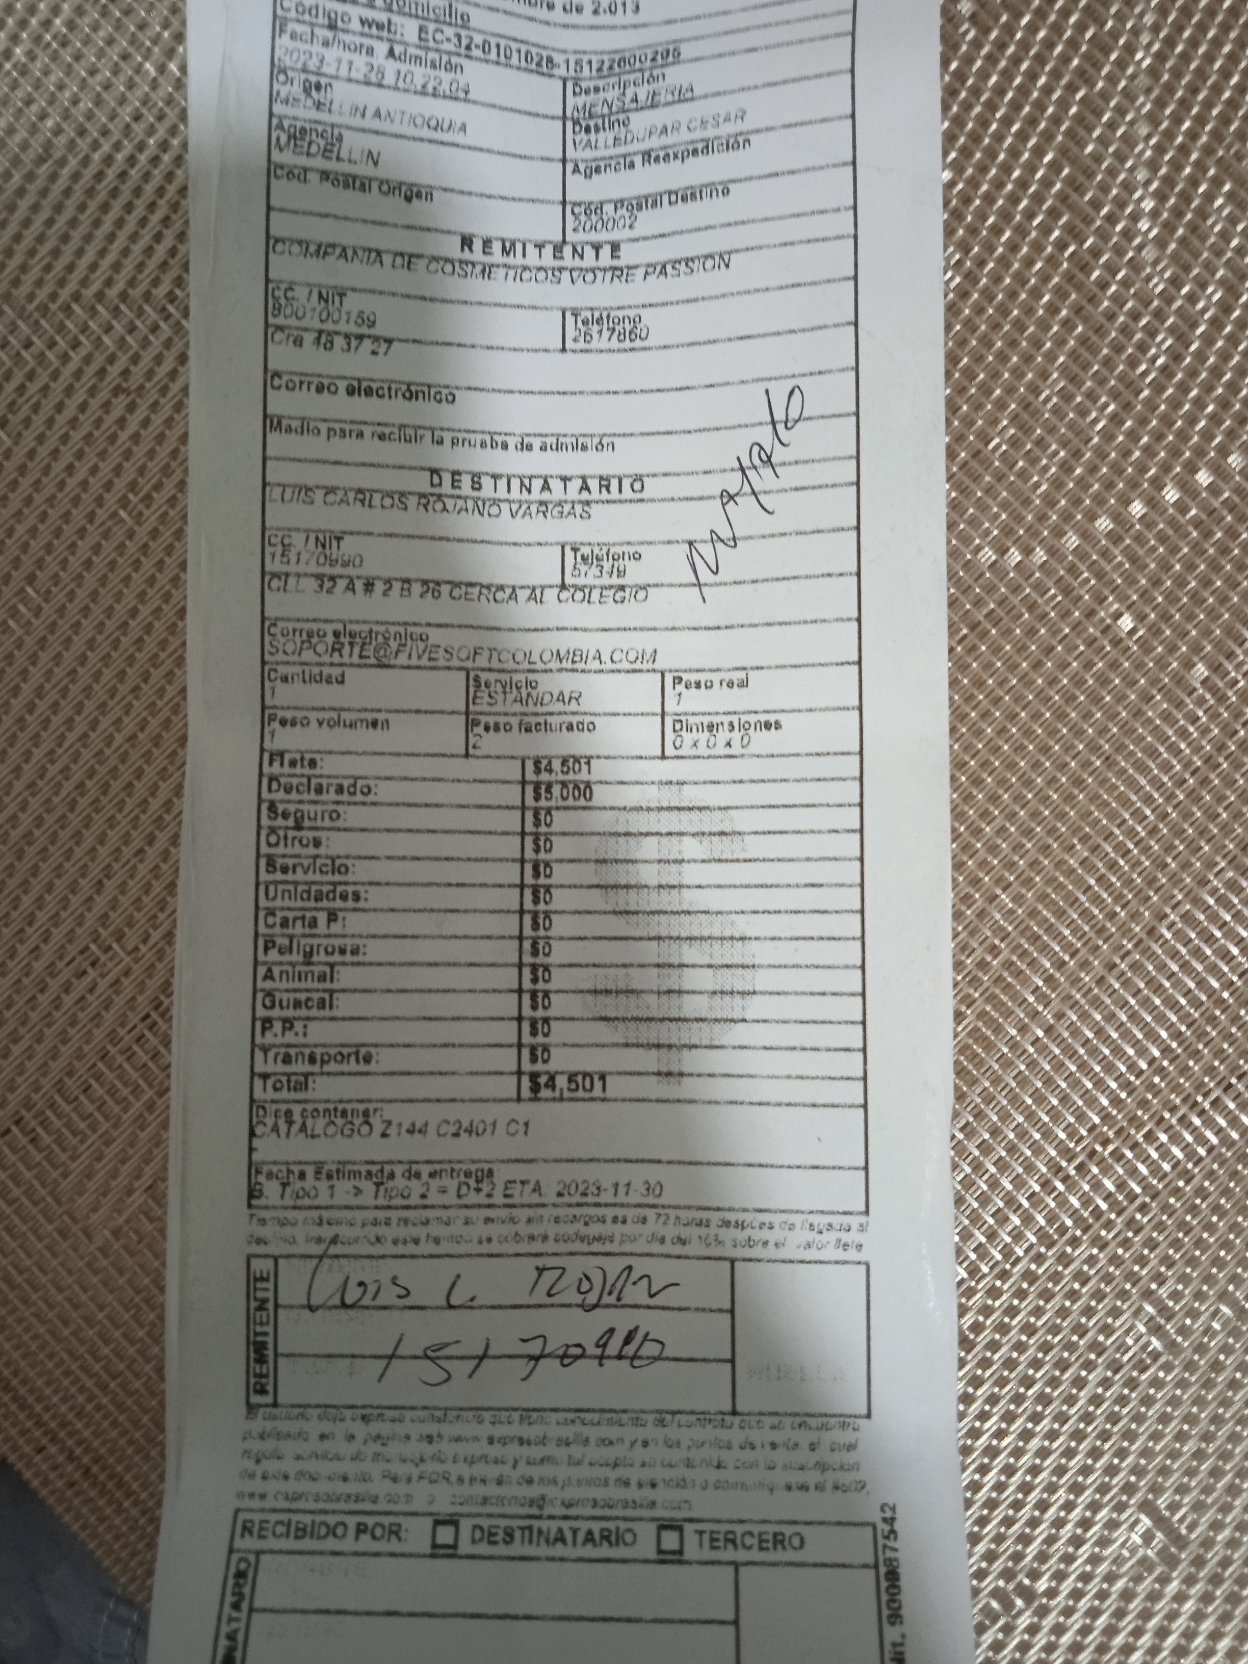 domicilio
de 2.013
Código web: EC-32-0101028-15122600295
Fecha/hora Admisión
2023-11-28 10:22:04
Descripción
MENSAJERIA
Origen
MEDELLIN ANTIOQUIA
Destino
VALLEDUPAR CESAR
Agencia
MEDELLIN
Agencia Reexpedición
Cód. Postal Origen
Cód. Postal Destino
200002
REMITENTE
COMPANIA DE COSMETICOS VOTRE PASSION
CC. / NIT
Teléfono
2617860
Cra 48 37 27
Correo electrónico
Medio para recibir la prueba de admisión
DESTINATARIO
LUIS CARLOS ROJANO VARGAS
CC. / NIT
15170990
Teléfono
57349
CLL 32 A # 2 B 26 CERCA AL COLEGIO
Correo electrónico
SOPORTE@FIVESOFTCOLOMBIA.COM
Cantidad
1
Servicio
ESTANDAR
Peso real
1
Peso volumen
1
Peso facturado
2
Dimensiones
0 x 0 x 0
Flete: $4,501
Declarado: $5,000
Seguro: $0
Otros: $0
Servicio: $0
Unidades: $0
Carta P: $0
Peligrosa: $0
Animal: $0
Guacal: $0
P.P.: $0
Transporte: $0
Total: $4,501
Dice contener:
CATALOGO Z144 C2401 C1
Fecha Estimada de entrega
B. Tipo 1 -> Tipo 2 = D+2 ETA: 2023-11-30
Tiempo máximo para reclamar su envío sin recargos es de 72 horas después de llegada al
destino, transcurrido este tiempo se cobrará bodegaje por día del 10% sobre el valor flete
REMITENTE
Luis C. Rojan
15170990
El usuario deja expresa constancia que tiene conocimiento del contrato que se encuentra
publicado en la página web www.expresobrasilia.com y en los puntos de venta, el cual
regula servicio de mensajería expresa y como tal acepta su contenido con la suscripción
de este documento. Para PQR a través de los puntos de atención o
www.expresobrasilia.com o contactenos@expresobrasilia.com
RECIBIDO POR: DESTINATARIO TERCERO
NATARIO
Nit. 900087542